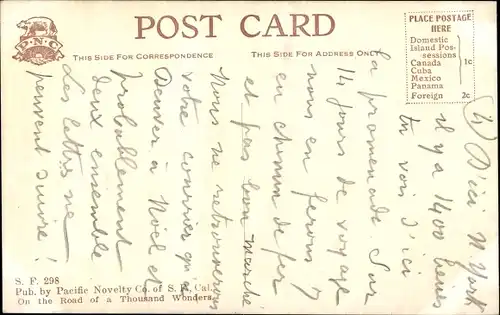 P.N.C.
POST CARD
THIS SIDE FOR CORRESPONDENCE
THIS SIDE FOR ADDRESS ONLY
PLACE POSTAGE
HERE
Domestic
Island Pos-
sessions
Canada 1c
Cuba
Mexico
Panama
Foreign 2c
4) D'ici N. York
il y a 1400 lieues
tu vois d'ici
la promenade Sur
14 jours de voyage
nous en ferons 7
en chemin de fer
et pas bon marché
Nous ne retrouverons
votre courrier qu'à
Denver à Noël et
probablement
deux ensemble
Les lettres ne
peuvent suivre!
S. F. 298
Pub. by Pacific Novelty Co. of S. F., Cal.
On the Road of a Thousand Wonders